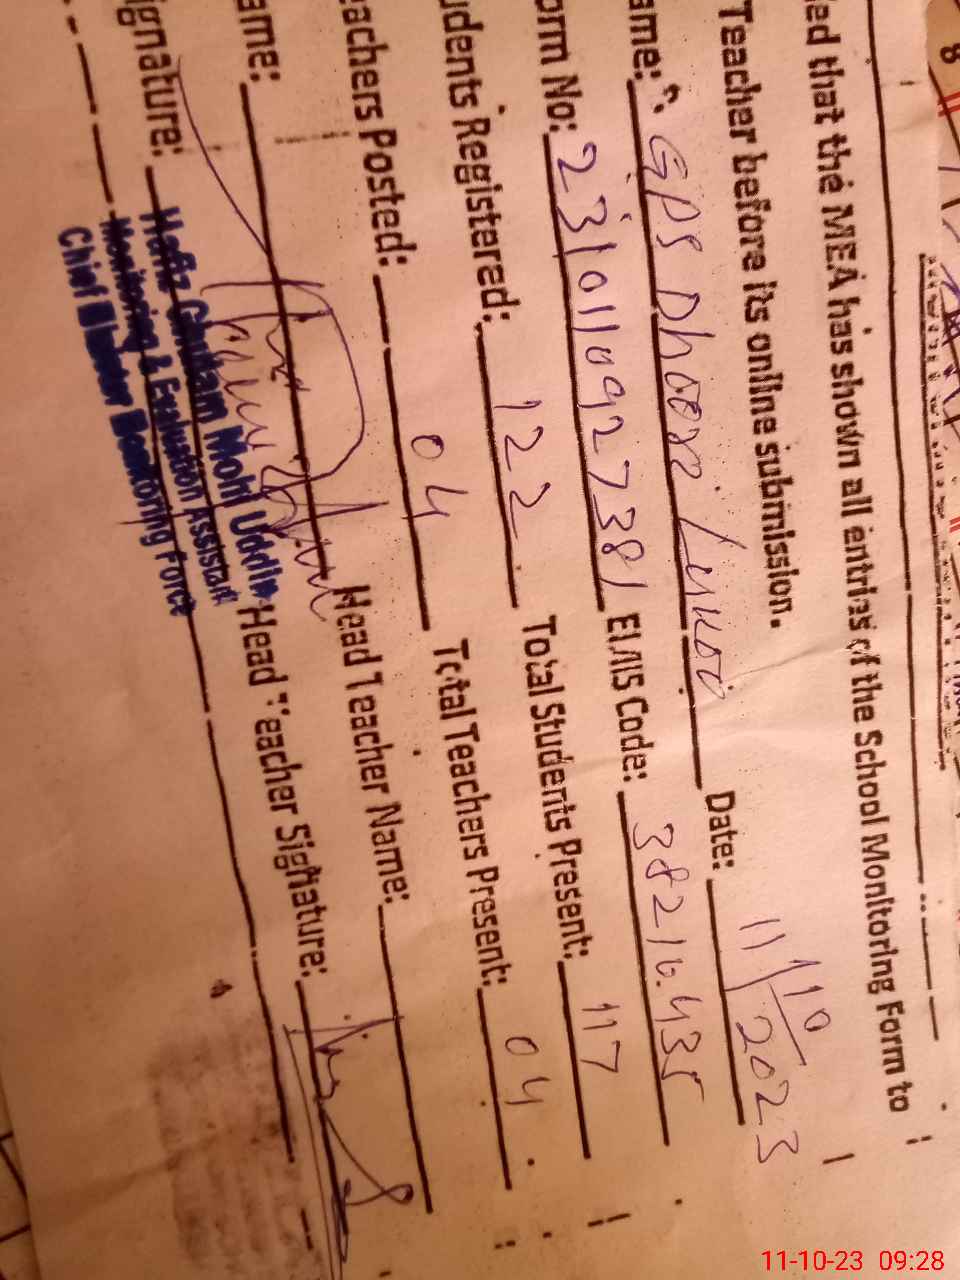 ed that the MEA has shown all entries of the School Monitoring Form to
Teacher before its online submission.
ame: GPS Dhoori Date: 11/10/2023
orm No: 2310110927381 EMIS Code: 38216435
udents Registered: 122 Total Students Present: 117
eachers Posted: 04 Total Teachers Present: 04
ame: Head Teacher Name:
ignature: Head Teacher Signature:
Hafiz Ghulam Mohi Uddin
Monitoring & Evaluation Assistant
Chief Minister Monitoring Force
11-10-23 09:28